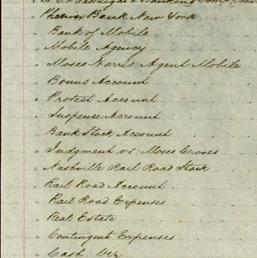 Phenix Bank New York
Bank of Mobile
Mobile Agency
Moses Harris Agent Mobile
Bonus Account
Protest Account
Suspense Account
Bank Stock Account
Judgment vs Moses Groves
Nashville Rail Road Stock
Rail Road Account
Rail Road Expenses
Real Estate
Contingent Expenses
Cash